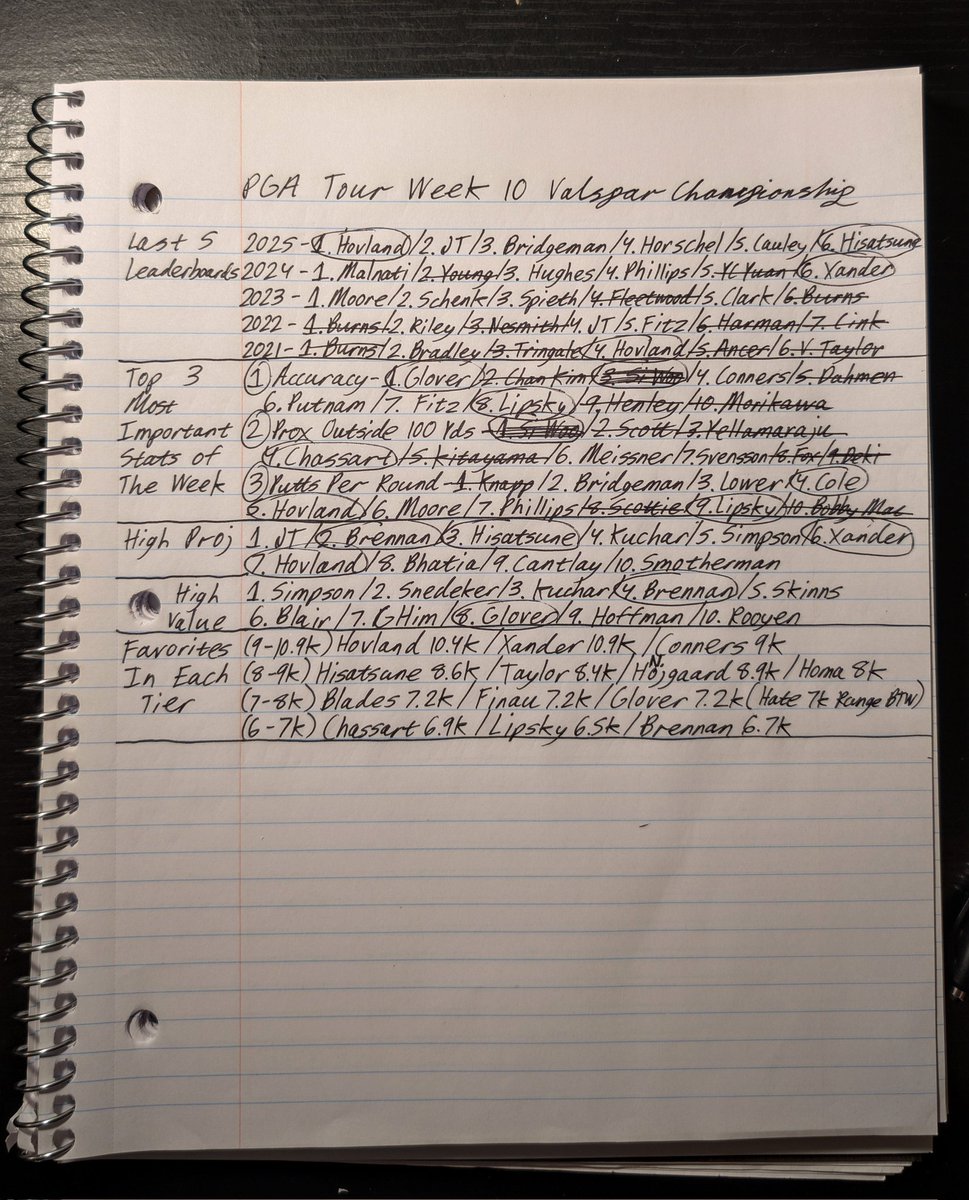 PGA Tour Week 10 Valspar Championship
Last 5 2025 - 1. Hovland/2. JT/3. Bridgeman/4. Horschel/5. Cauley/6. Hisatsune
Leaderboards 2024 - 1. Malnati/2. Young/3. Hughes/4. Phillips/5. YC Yuan/6. Xander
2023 - 1. Moore/2. Schenk/3. Spieth/4. Fleetwood/5. Clark/6. Burns
2022 - 1. Burns/2. Riley/3. Nesmith/4. JT/5. Fitz/6. Harman/7. Cink
2021 - 1. Burns/2. Bradley/3. Tringale/4. Hovland/5. Ancer/6. V. Taylor
Top 3 1 Accuracy - 1. Glover/2. Chan Kim/3. Si Woo/4. Conners/5. Dahmen
Most 6. Putnam/7. Fitz/8. Lipsky/9. Henley/10. Morikawa
Important 2 Prox Outside 100 Yds - 1. Si Woo/2. Scott/3. Yellamaraju
Stats of 4. Chassart/5. Kitayama/6. Meissner/7. Svensson/8. Fox/9. Deki
The Week 3 Putts Per Round - 1. Knapp/2. Bridgeman/3. Lower/4. Cole
5. Hovland/6. Moore/7. Phillips/8. Scottie/9. Lipsky/10. Bobby Mac
High Proj 1. JT/2. Brennan/3. Hisatsune/4. Kuchar/5. Simpson/6. Xander
7. Hovland/8. Bhatia/9. Cantlay/10. Smotherman
High 1. Simpson/2. Snedeker/3. Kuchar/4. Brennan/5. Skinns
Value 6. Blair/7. GHim/8. Glover/9. Hoffman/10. Rooyen
Favorites (9-10.9k) Hovland 10.4k / Xander 10.9k / Conners 9k
In Each (8-9k) Hisatsune 8.6k / Taylor 8.4k / N. Hojgaard 8.9k / Homa 8k
Tier (7-8k) Blades 7.2k / Finau 7.2k / Glover 7.2k (Hate 7k Range BTW)
(6-7k) Chassart 6.9k / Lipsky 6.5k / Brennan 6.7k